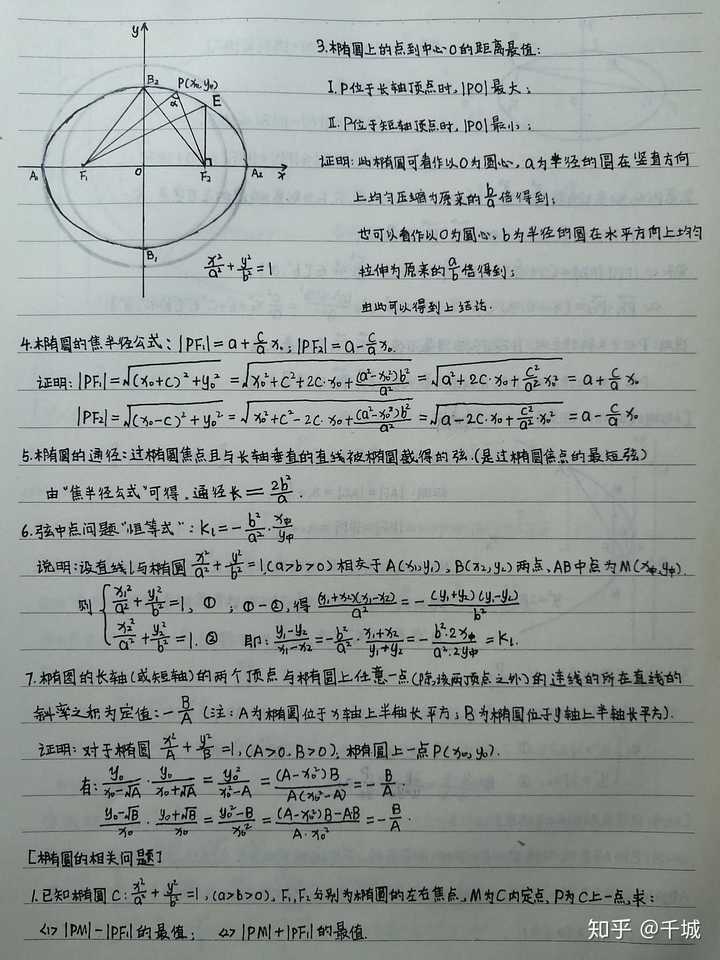 y
B₂
P(x₀,y₀)
α
E
A₁
F₁
O
F₂
A₂
x
B₁
x²/a² + y²/b² = 1
3.椭圆上的点到中心O的距离最值:
I.P位于长轴顶点时,|PO|最大;
II.P位于短轴顶点时,|PO|最小;
证明:此椭圆可看作以O为圆心,a为半径的圆在竖直方向
上均匀压缩为原来的b/a倍得到;
也可以看作以O为圆心,b为半径的圆在水平方向上均匀
拉伸为原来的a/b倍得到;
由此可以得到上结论.
4.椭圆的焦半径公式: |PF₁|=a+(c/a)x₀; |PF₂|=a-(c/a)x₀.
证明: |PF₁|=√((x₀+c)²+y₀²) = √(x₀²+c²+2c·x₀+(a²-x₀²)b²/a²) = √(a²+2c·x₀+(c²/a²)x₀²) = a+(c/a)x₀
|PF₂|=√((x₀-c)²+y₀²) = √(x₀²+c²-2c·x₀+(a²-x₀²)b²/a²) = √(a-2c·x₀+(c²/a²)·x₀²) = a-(c/a)x₀
5.椭圆的通径:过椭圆焦点且与长轴垂直的直线被椭圆截得的弦.(是过椭圆焦点的最短弦)
由"焦半径公式"可得,通径长=2b²/a.
6.弦中点问题"恒等式": K₁=-(b²/a²)·(x中/y中)
说明:设直线l与椭圆x²/a²+y²/b²=1,(a>b>0)相交于A(x₁,y₁),B(x₂,y₂)两点,AB中点为M(x中,y中).
则 { x₁²/a²+y₁²/b²=1, ① ; ①-②,得 (x₁+x₂)(x₁-x₂)/a² = -(y₁+y₂)(y₁-y₂)/b²
x₂²/a²+y₂²/b²=1. ② 即: (y₁-y₂)/(x₁-x₂)=-(b²/a²)·(x₁+x₂)/(y₁+y₂)=-(b²·2x中)/(a²·2y中)=K₁.
7.椭圆的长轴(或短轴)的两个顶点与椭圆上任意一点(除该两顶点之外)的连线的所在直线的
斜率之积为定值:-B/A (注:A为椭圆位于x轴上半轴长平方;B为椭圆位于y轴上半轴长平方).
证明:对于椭圆 x²/A+y²/B=1,(A>0.B>0),椭圆上一点P(x₀,y₀).
有: y₀/(x₀-√A)·y₀/(x₀+√A) = y₀²/(x₀²-A) = (A-x₀²)B/(A(x₀²-A)) = -B/A.
(y₀-√B)/x₀·(y₀+√B)/x₀ = (y₀²-B)/x₀² = ((A-x₀²)B-AB)/(A·x₀²) = -B/A
[椭圆的相关问题]
1.已知椭圆C: x²/a²+y²/b²=1,(a>b>0),F₁,F₂分别为椭圆的左右焦点,M为C内定点,P为C上一点,求:
<1> |PM|-|PF₁|的最值; <2> |PM|+|PF₁|的最值.
知乎 @千城